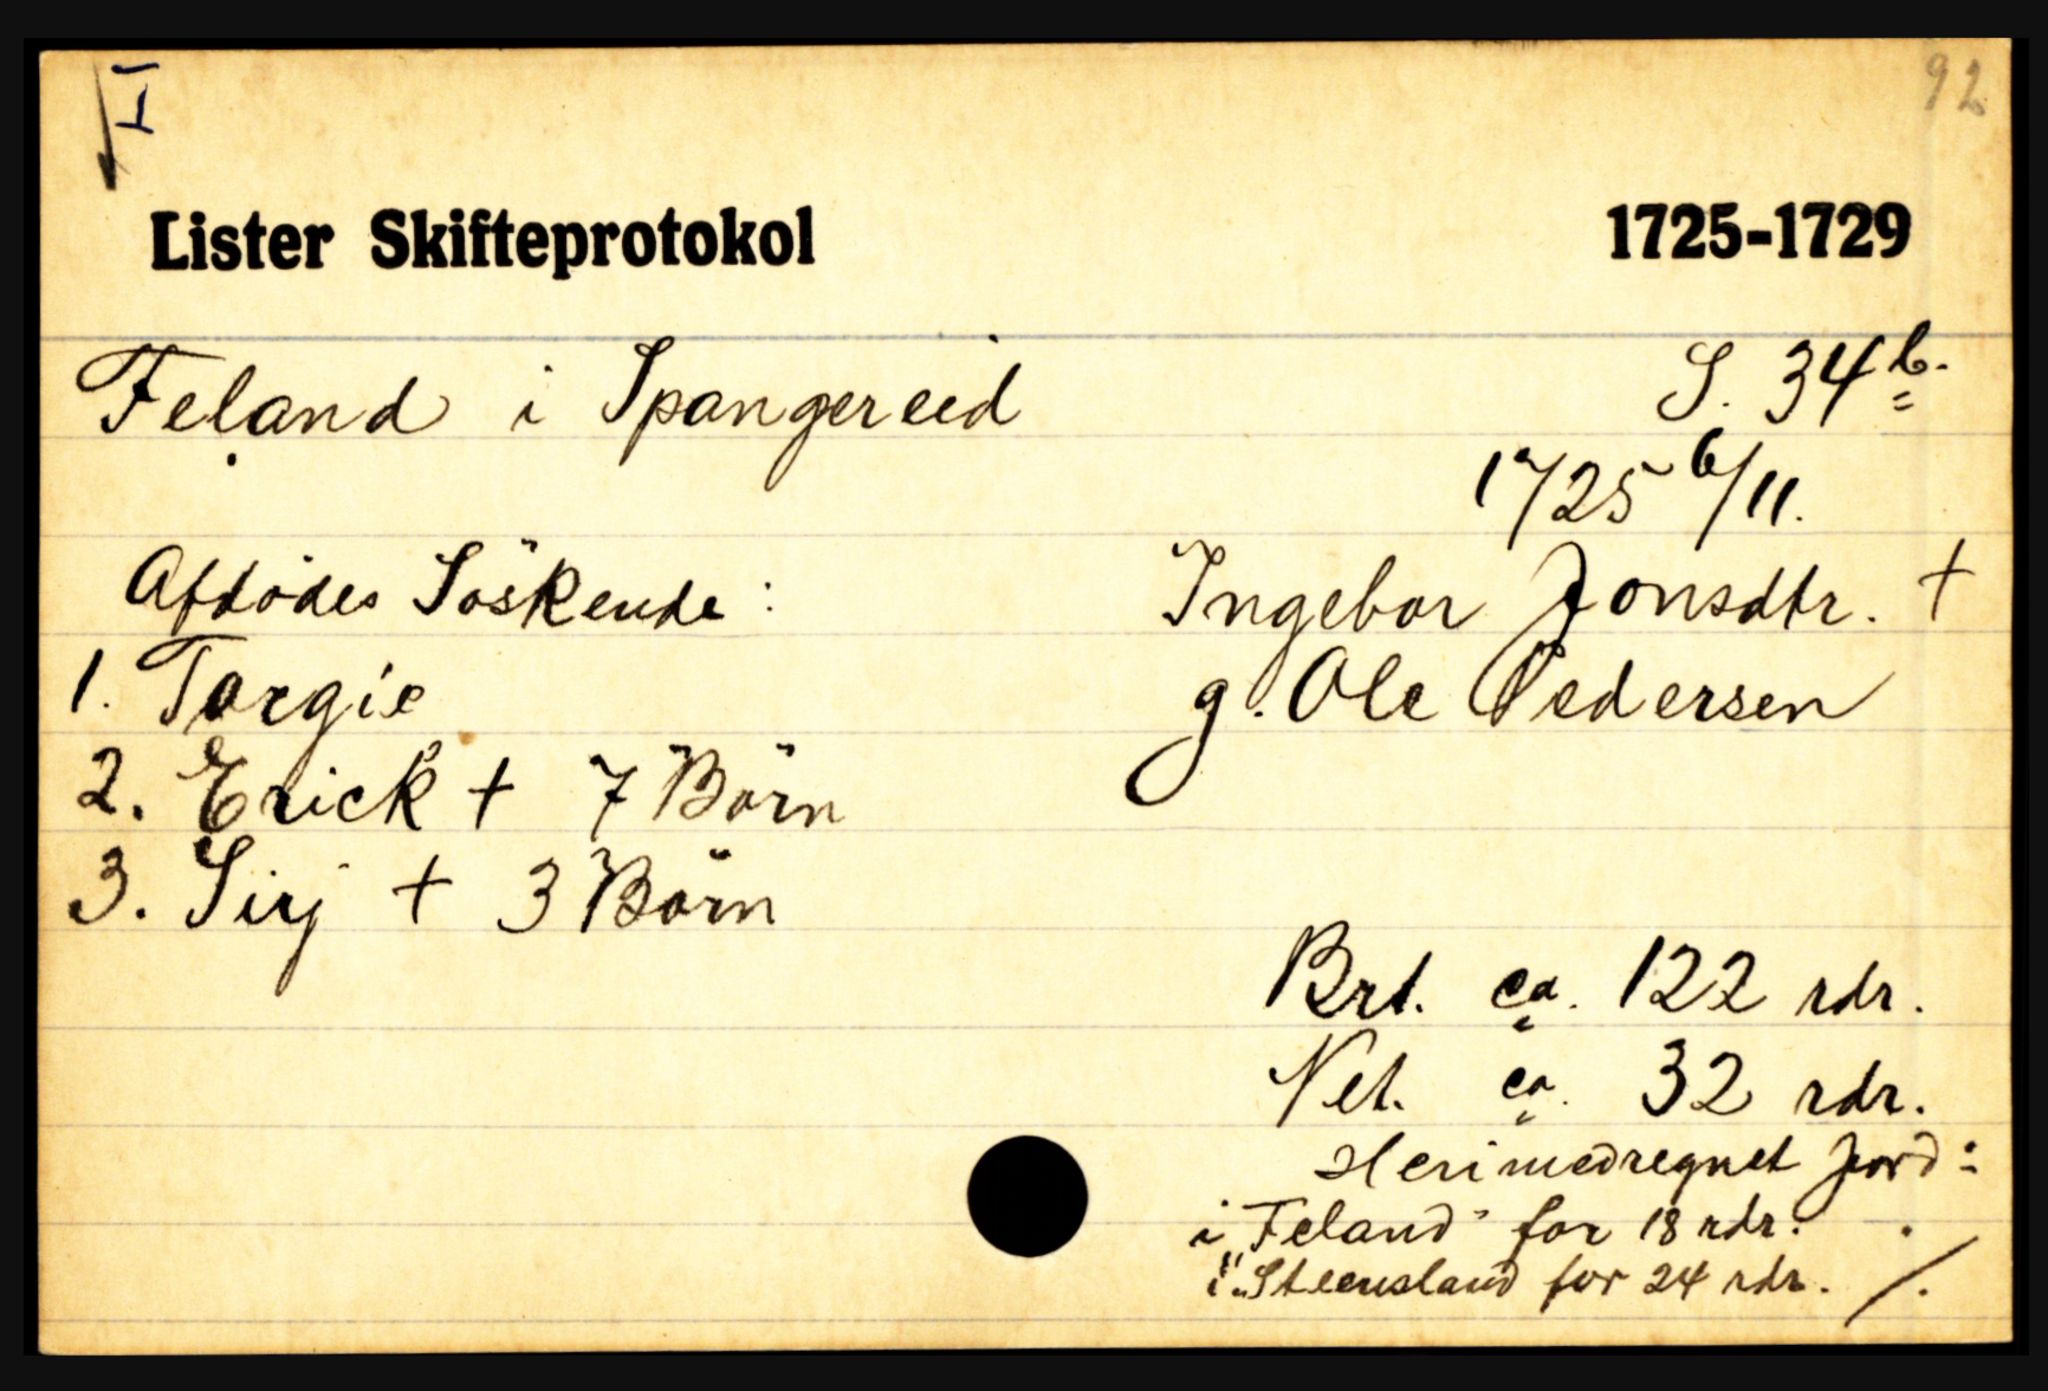 I
92
Lister Skifteprotokol 1725-1729
Feland i Spangereid S. 34b.
1725 6/11.
Afdödes Söskende: Ingebor Jonsdtr. +
1. Torgie g. Ole Pedersen
2. Erick + 7 Börn
3. Sirj + 3 Börn
Brt. ca. 122 rdr.
Net. ca. 32 rdr.
Herimedregnet jord:
i "Feland" for 18 rdr.
i "Steensland for 24 rdr. /.